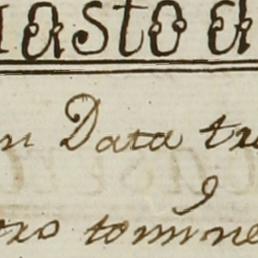 asto a
n Data tra
tro tomine